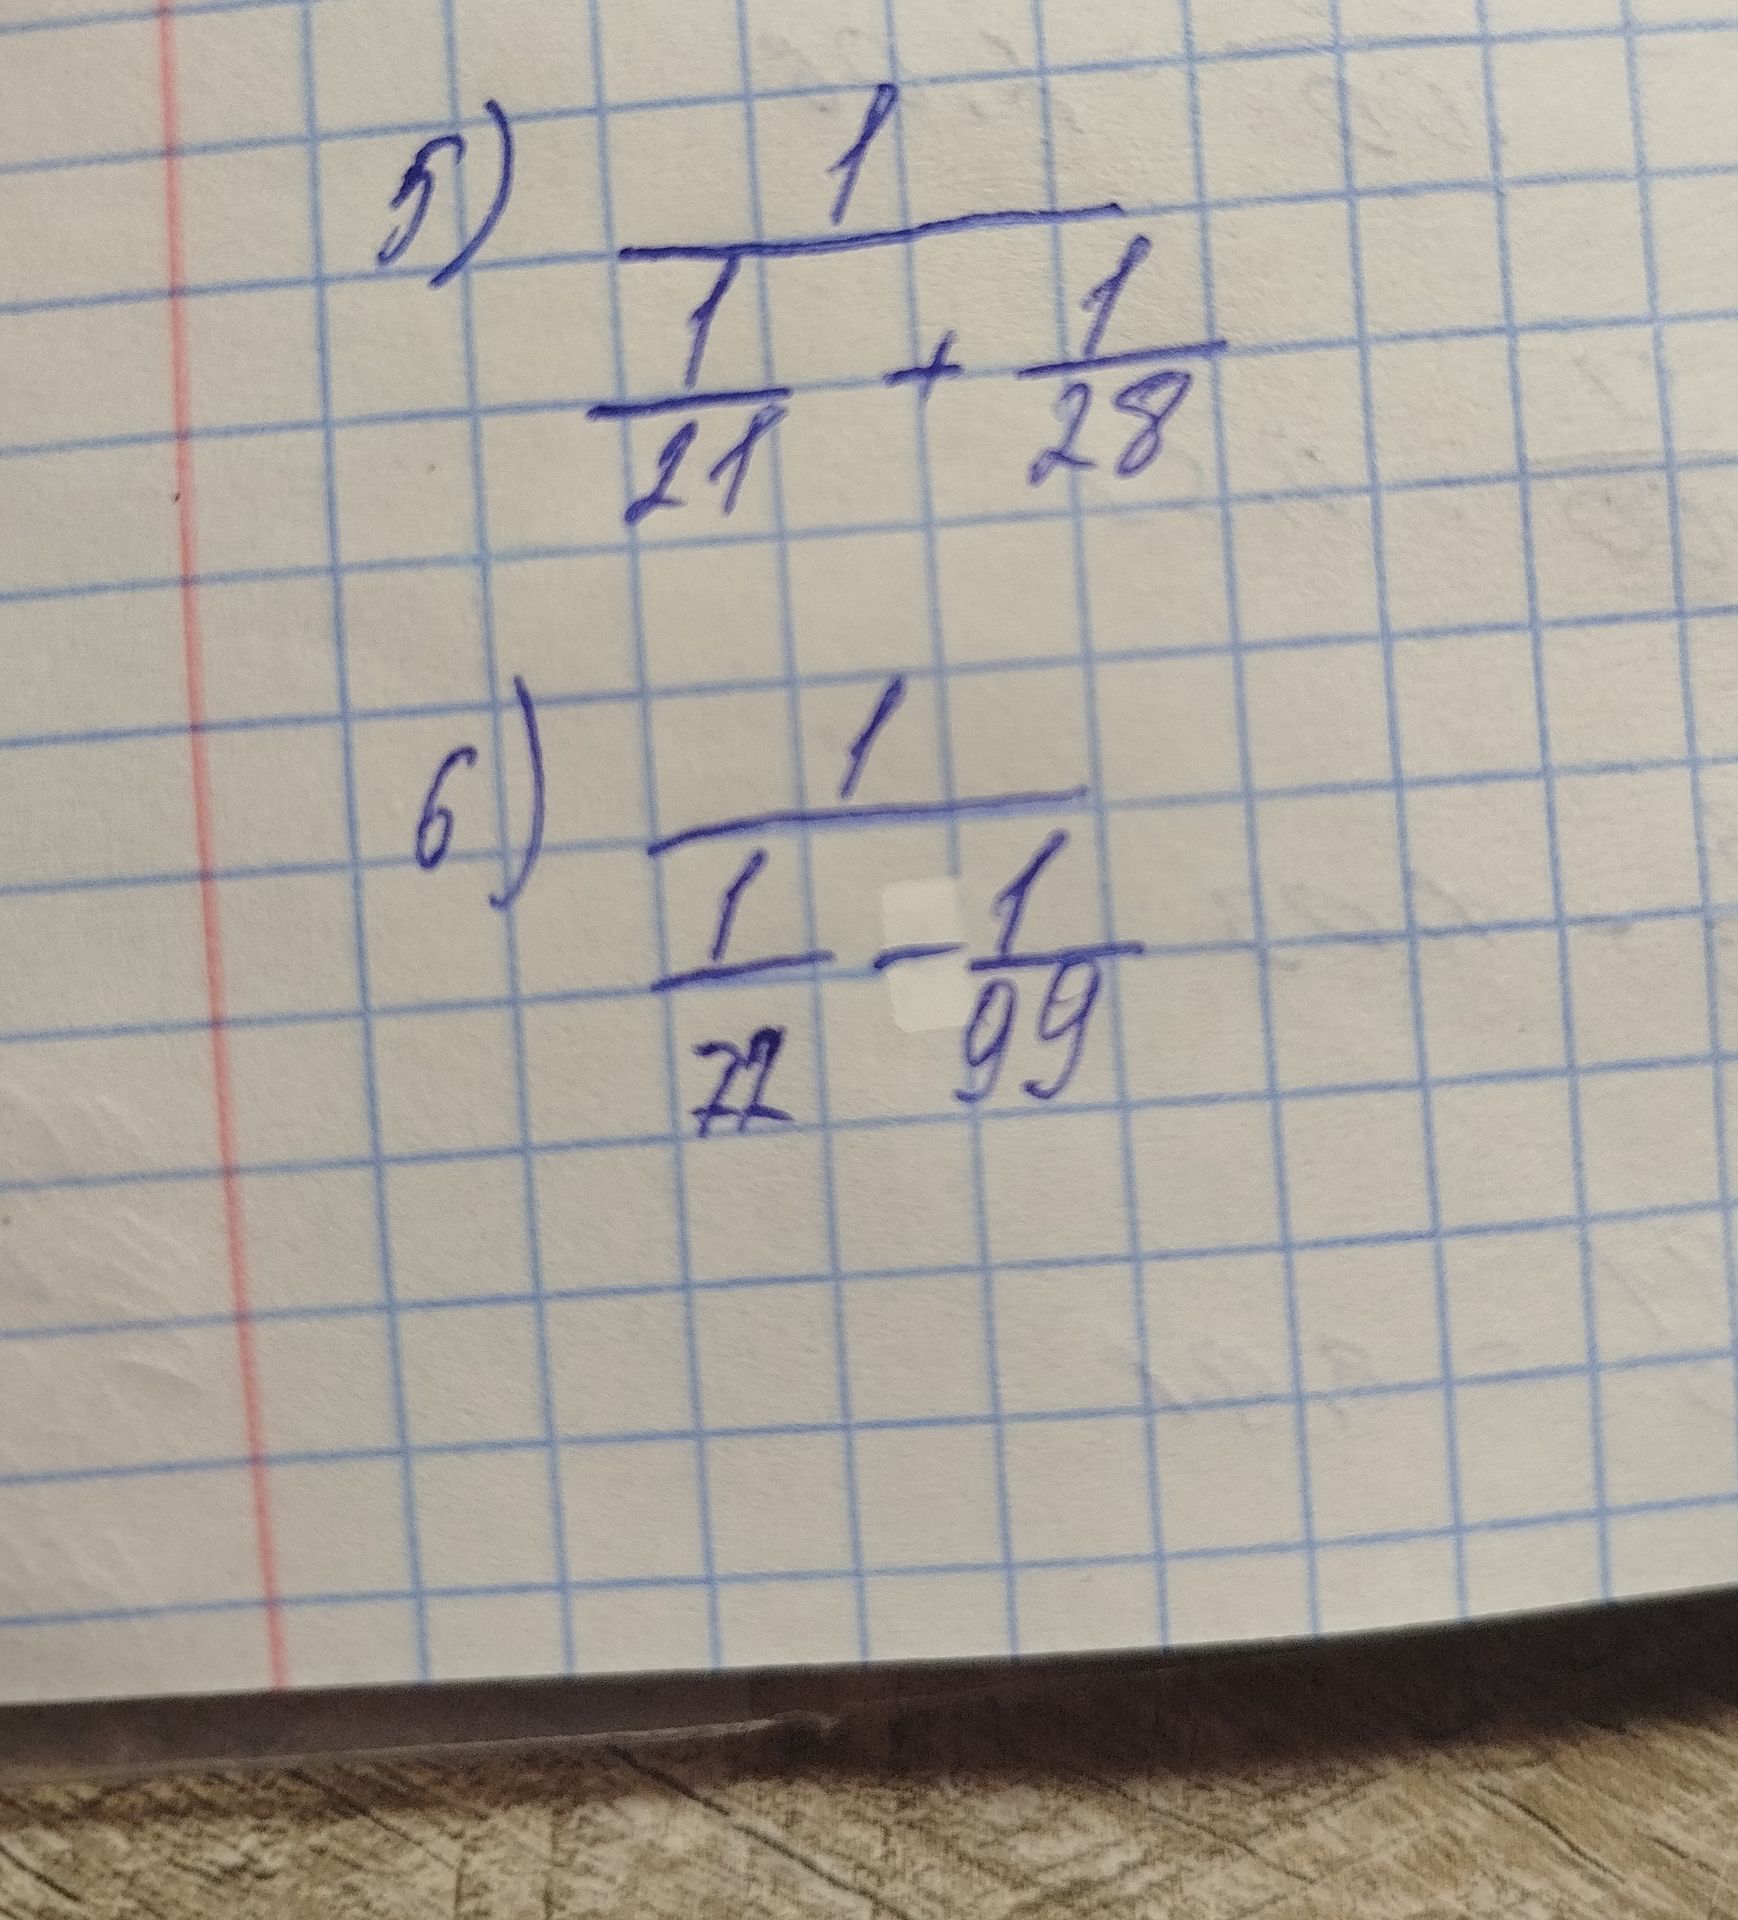 5) 1
1/21 + 1/28
6) 1
1/72 - 1/99